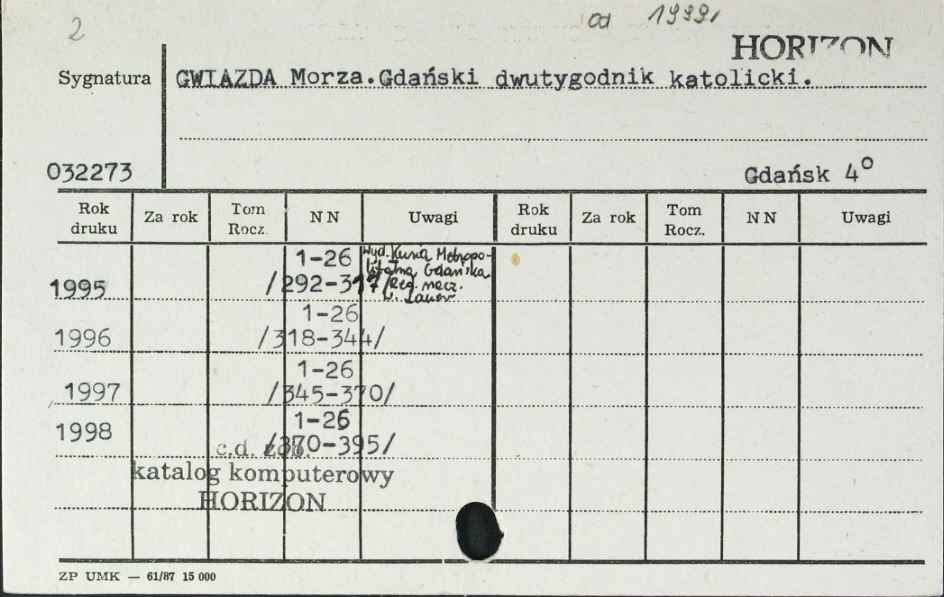 2
od 1999r
HORIZON
Sygnatura
GWIAZDA Morza.Gdański dwutygodnik katolicki.
032273
Gdańsk 4°
Rok druku Za rok Tom Rocz. NN Uwagi Rok druku Za rok Tom Rocz. NN Uwagi
1-26 Wyd. Kuria Metropo-
litalna Gdańska.
1995 /292-317/ Red. nacz.
1-26
1996 /318-344/
1-26
1997 /345-370/
1-26
1998 /370-395/
c.d. zob.
katalog komputerowy
HORIZON
ZP UMK — 61/87 15 000